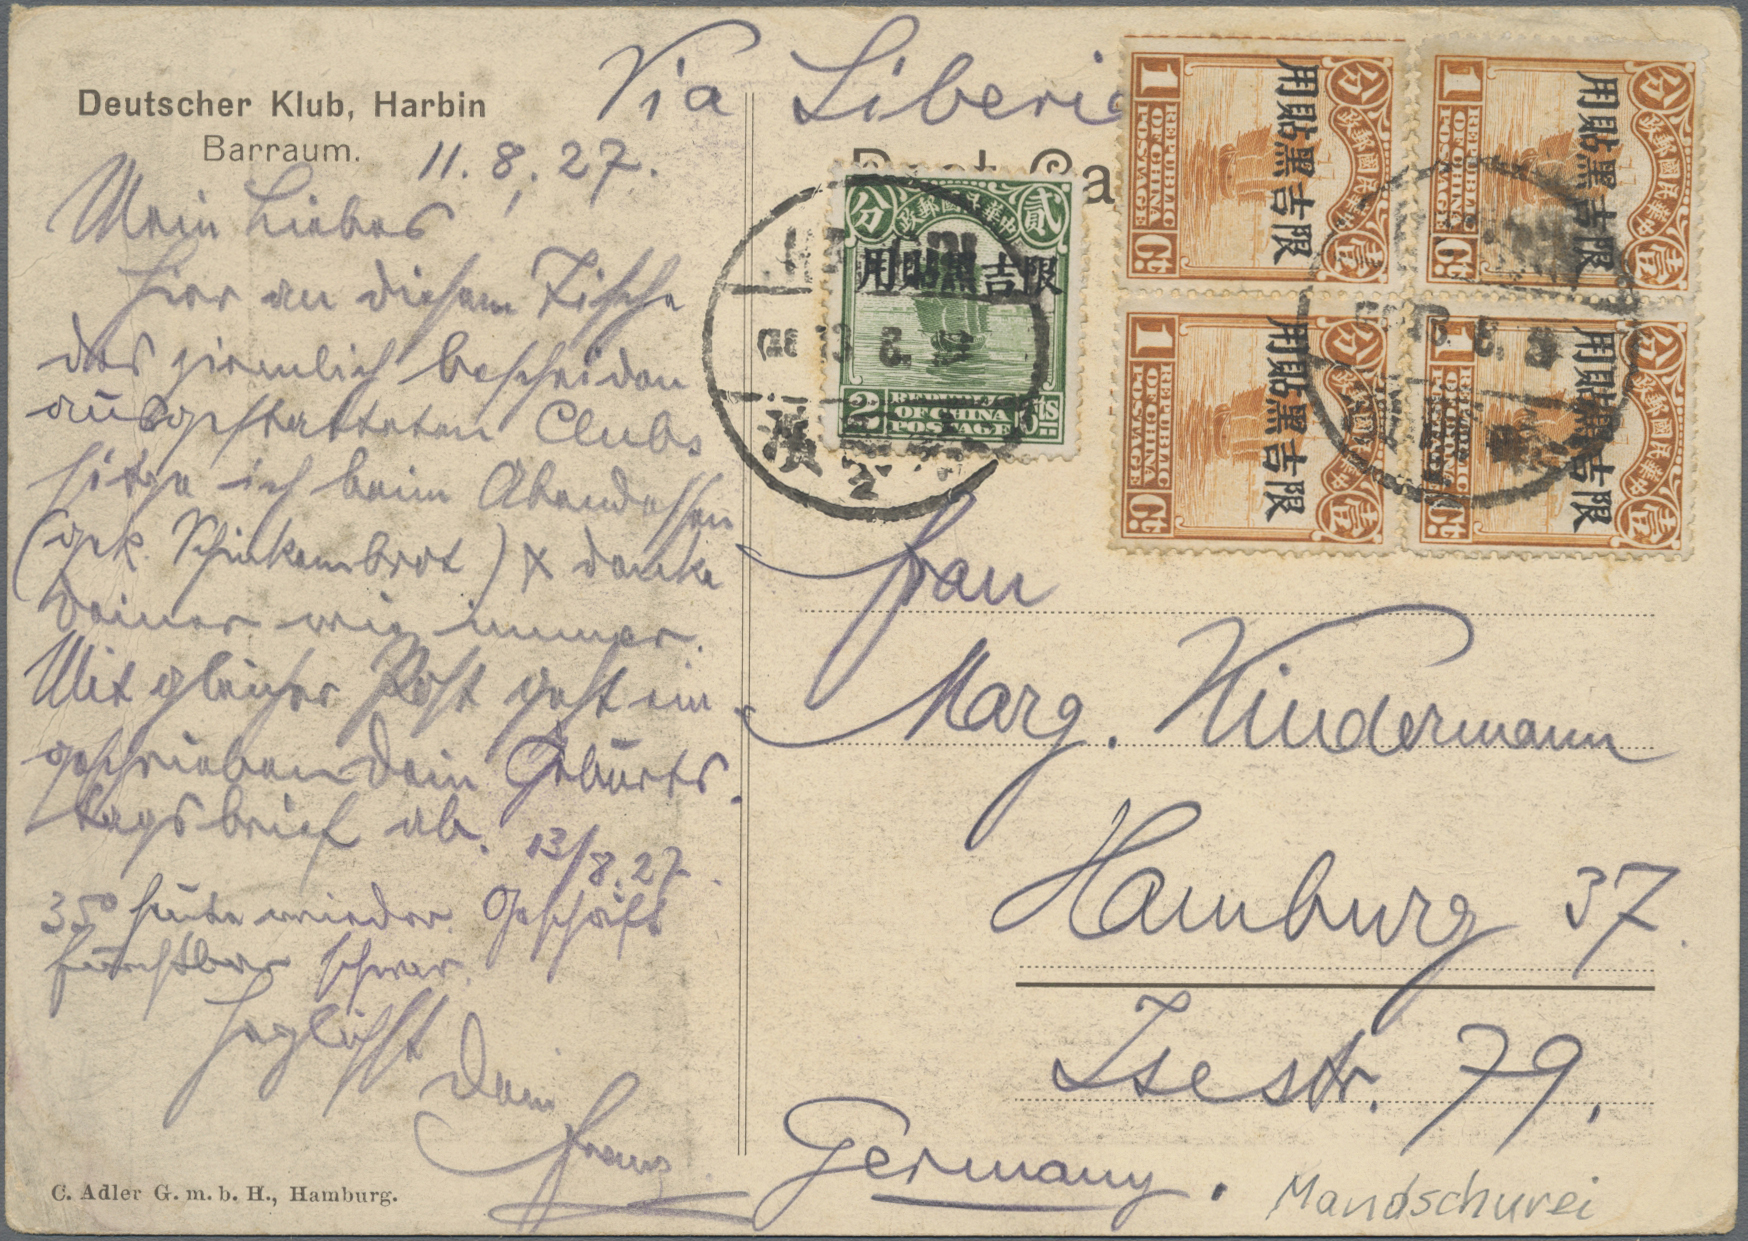 Deutscher Klub, Harbin
Barraum.
11.8.27.
Mein Liebes
hier an diesem Tische
des ziemlich bescheiden
ausgestatteten Clubs
sitze ich beim Abendessen
(gek. Schinkenbrot) & denke
Deiner wie immer.
Mit gleicher Post geht ein
geschrieben Dein Geburts
tagsbrief ab. 13/8.27.
35° heute wieder. Geschäft
furchtbar schwer.
Dein
Franz
C. Adler G. m. b. H., Hamburg.
Via Siberia
Post Ca
分 中華民國郵政 貳
限吉黑貼用
2 REPUBLIC OF CHINA POSTAGE CTS
分 中華民國郵政 壹
限吉黑貼用
1 REPUBLIC OF CHINA POSTAGE Ct
分 中華民國郵政 壹
限吉黑貼用
1 REPUBLIC OF CHINA POSTAGE Ct
分 中華民國郵政 壹
限吉黑貼用
1 REPUBLIC OF CHINA POSTAGE Ct
分 中華民國郵政 壹
限吉黑貼用
1 REPUBLIC OF CHINA POSTAGE Ct
Frau
Marg. Kindermann
Hamburg 37.
Isestr. 79.
Germany.
Mandschurei